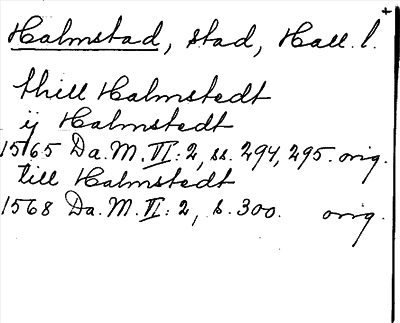 Halmstad, stad, Hall. l. +
thill Halmstedt
ij Halmstedt
1565 Da. M. VI: 2, ss. 294, 295. orig.
till Halmstedt
1568 Da. M. VI: 2, s. 300. orig.